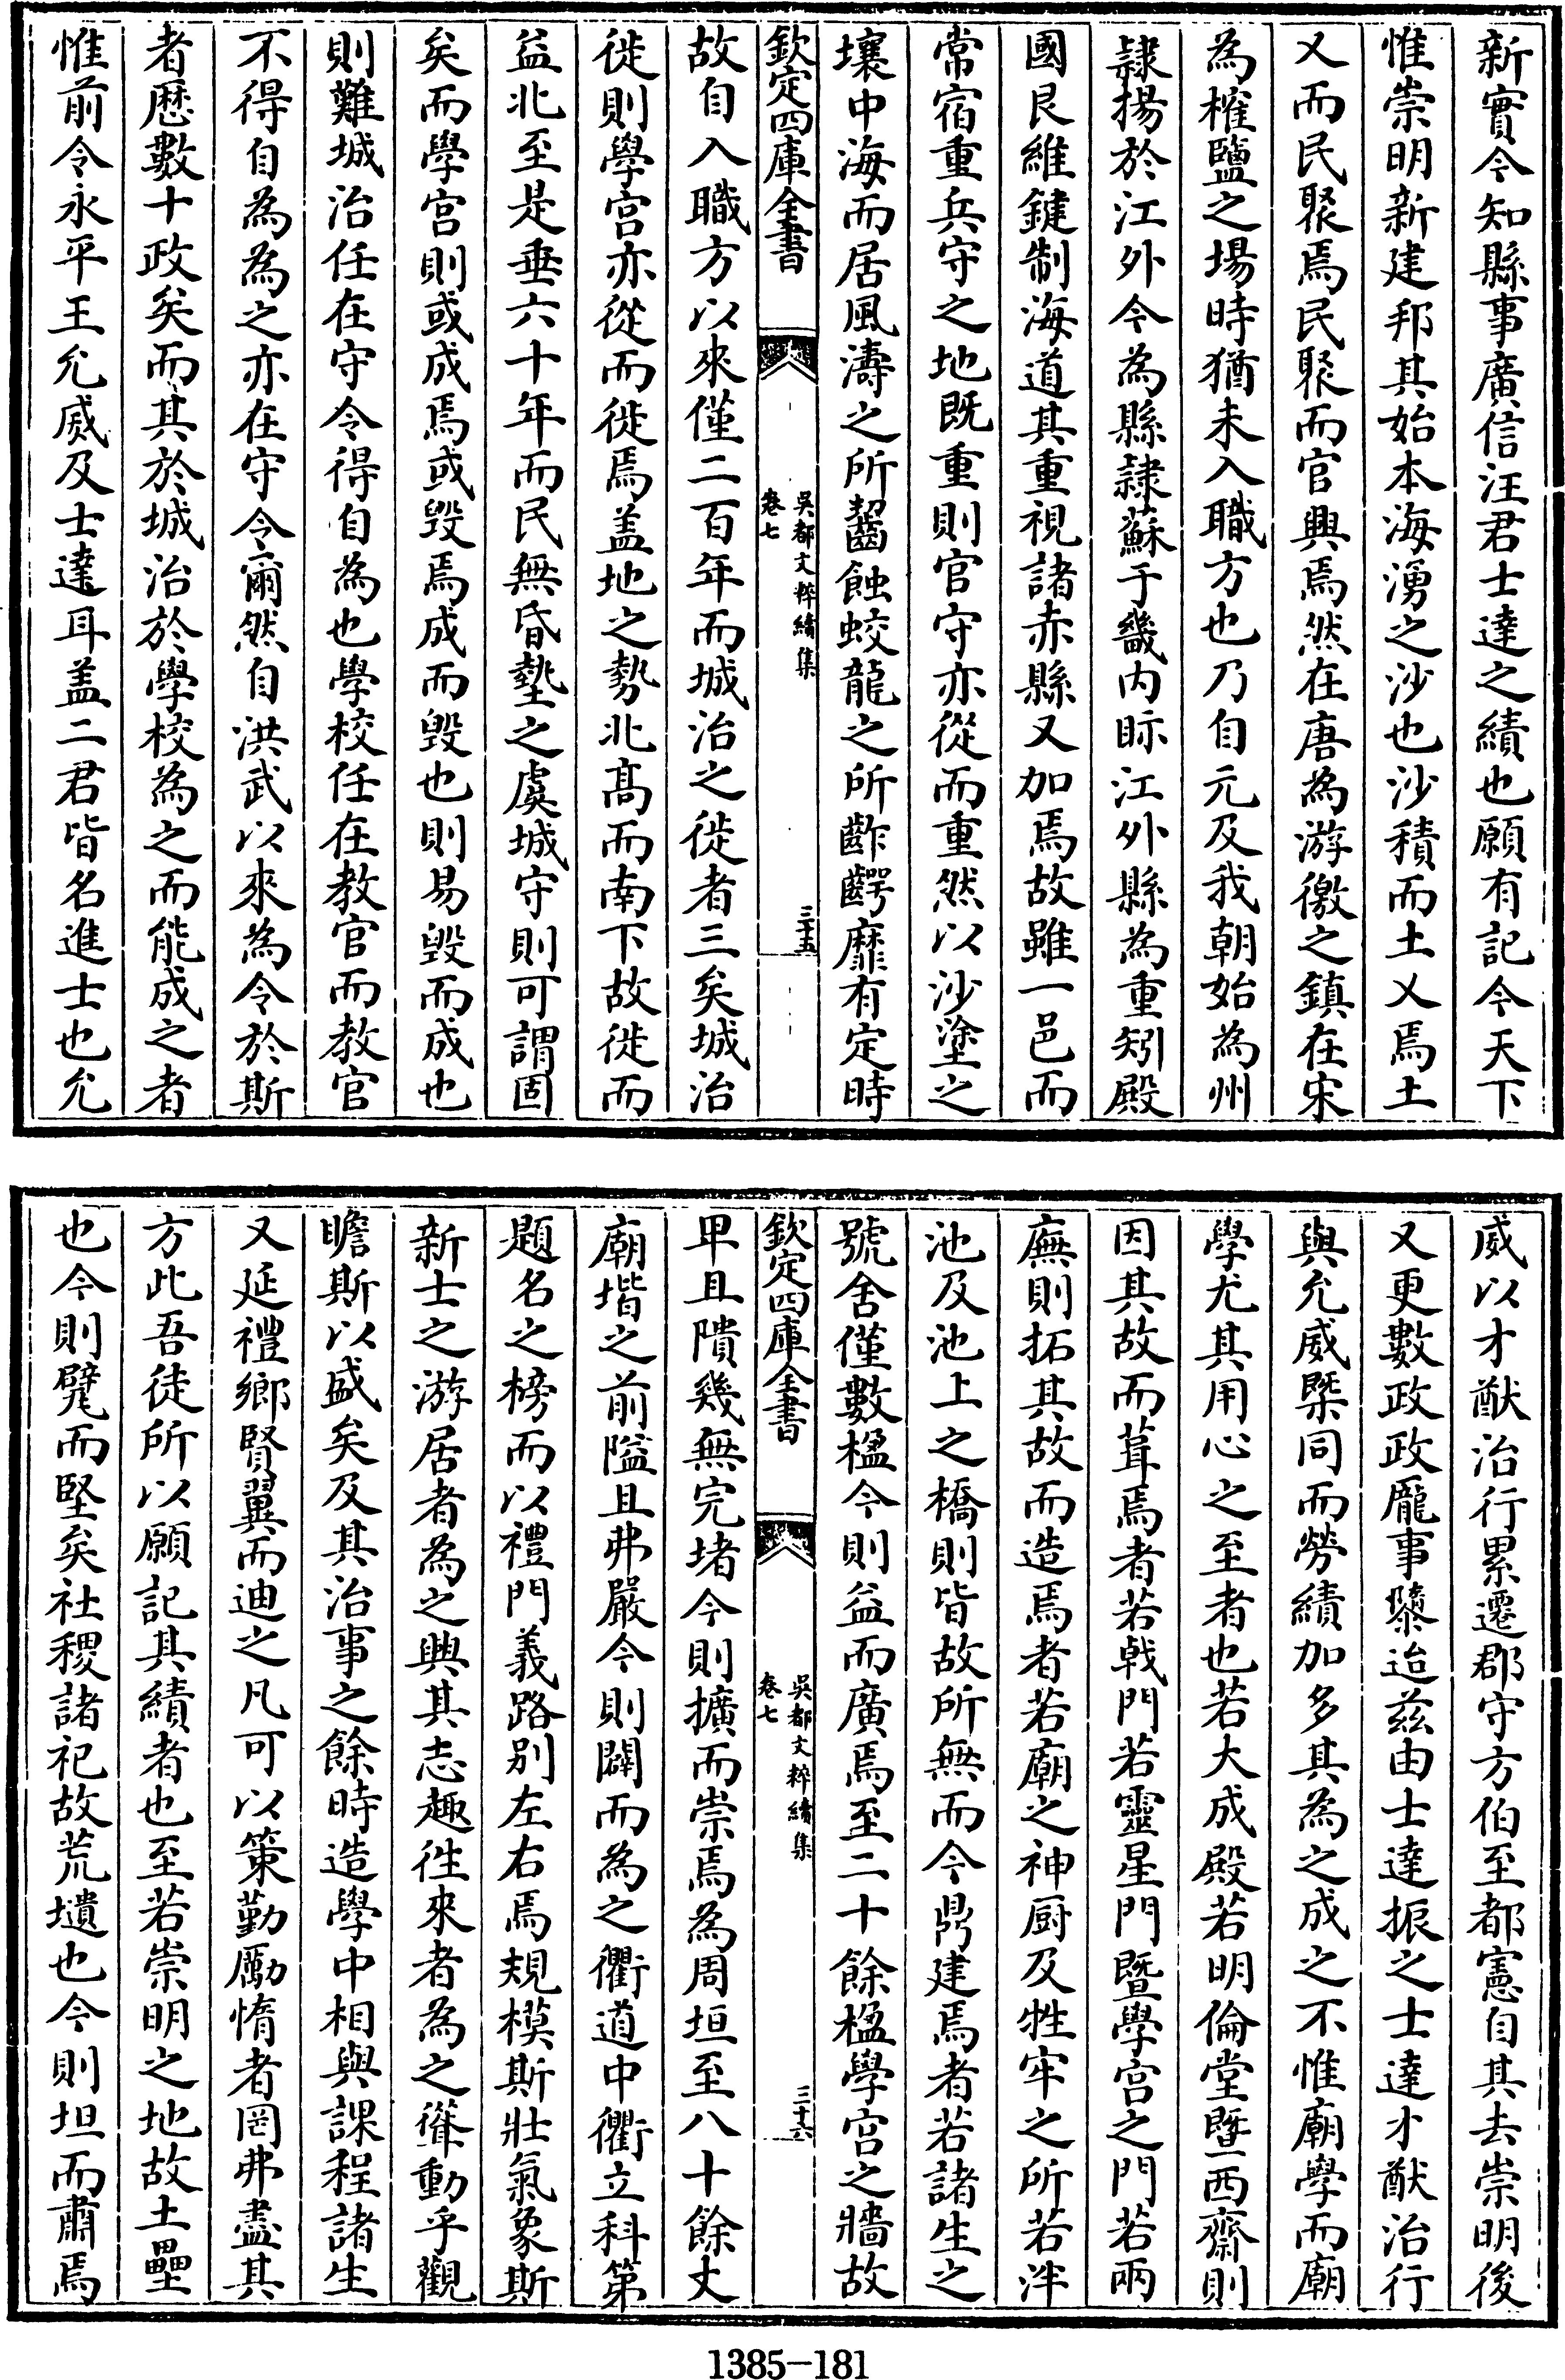 新實今知縣事廣信汪君士達之績也願有記今天下
惟崇明新建邦其始本海湧之沙也沙積而土乂焉土
乂而民聚焉民聚而官興焉然在唐為游徼之鎮在宋
為榷鹽之場時猶未入職方也乃自元及我朝始為州
隷揚於江外今為縣隷蘇于畿内眎江外縣為重矧殿
國艮維鍵制海道其重視諸赤縣又加焉故雖一邑而
常宿重兵守之地既重則官守亦從而重然以沙塗之
壤中海而居風濤之所齧蝕蛟龍之所齚齶靡有定時
欽定四庫全書
吳都文粹續集
卷七
三十五
故自入職方以來僅二百年而城治之徙者三矣城治
徙則學宫亦從而徙焉盖地之勢北髙而南下故徙而
益北至是垂六十年而民無昏墊之虞城守則可謂固
矣而學宫則或成焉或毁焉成而毁也則易毁而成也
則難城治任在守令得自為也學校任在教官而教官
不得自為為之亦在守令爾然自洪武以來為令於斯
者歴數十政矣而其於城治於學校為之而能成之者
惟前令永平王允威及士達耳盖二君皆名進士也允
威以才猷治行累遷郡守方伯至都憲自其去崇明後
又更數政政龎事隳迨兹由士達振之士達才猷治行
與允威槩同而勞績加多其為之成之不惟廟學而廟
學尤其用心之至者也若大成殿若明倫堂暨西齋則
因其故而葺焉者若㦸門若靈星門暨學宫之門若兩
廡則拓其故而造焉者若廟之神厨及牲牢之所若泮
池及池上之橋則皆故所無而今鼎建焉者若諸生之
號舍僅數楹今則益而廣焉至二十餘楹學宫之牆故
欽定四庫全書
吳都文粹續集
卷七
三十六
卑且隤幾無完堵今則擴而崇焉為周垣至八十餘丈
廟堦之前隘且弗嚴今則闢而為之衢道中衢立科第
題名之榜而以禮門義路别左右焉規模斯壯氣象斯
新士之游居者為之興其志趣徃來者為之聳動乎觀
瞻斯以盛矣及其治事之餘時造學中相與課程諸生
又延禮鄉賢翼而迪之凡可以策勤厲惰者罔弗盡其
方此吾徒所以願記其績者也至若崇明之地故土壘
也今則甓而堅矣社稷諸祀故荒壝也今則坦而肅焉
1385-181